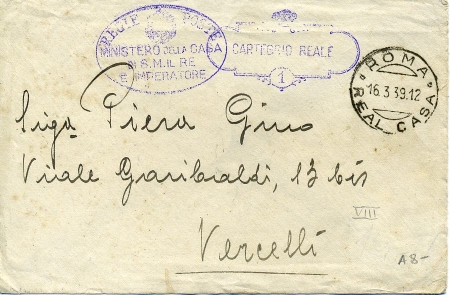 REGIE POSTE
MINISTERO DELLA CASA
DI S.M. IL RE
E IMPERATORE
CARTEGGIO REALE
1
ROMA
16.3.39.12
REAL CASA
Sig.a Piera Gino
Viale Garibaldi, 13 bis
VIII
Vercelli
A8-